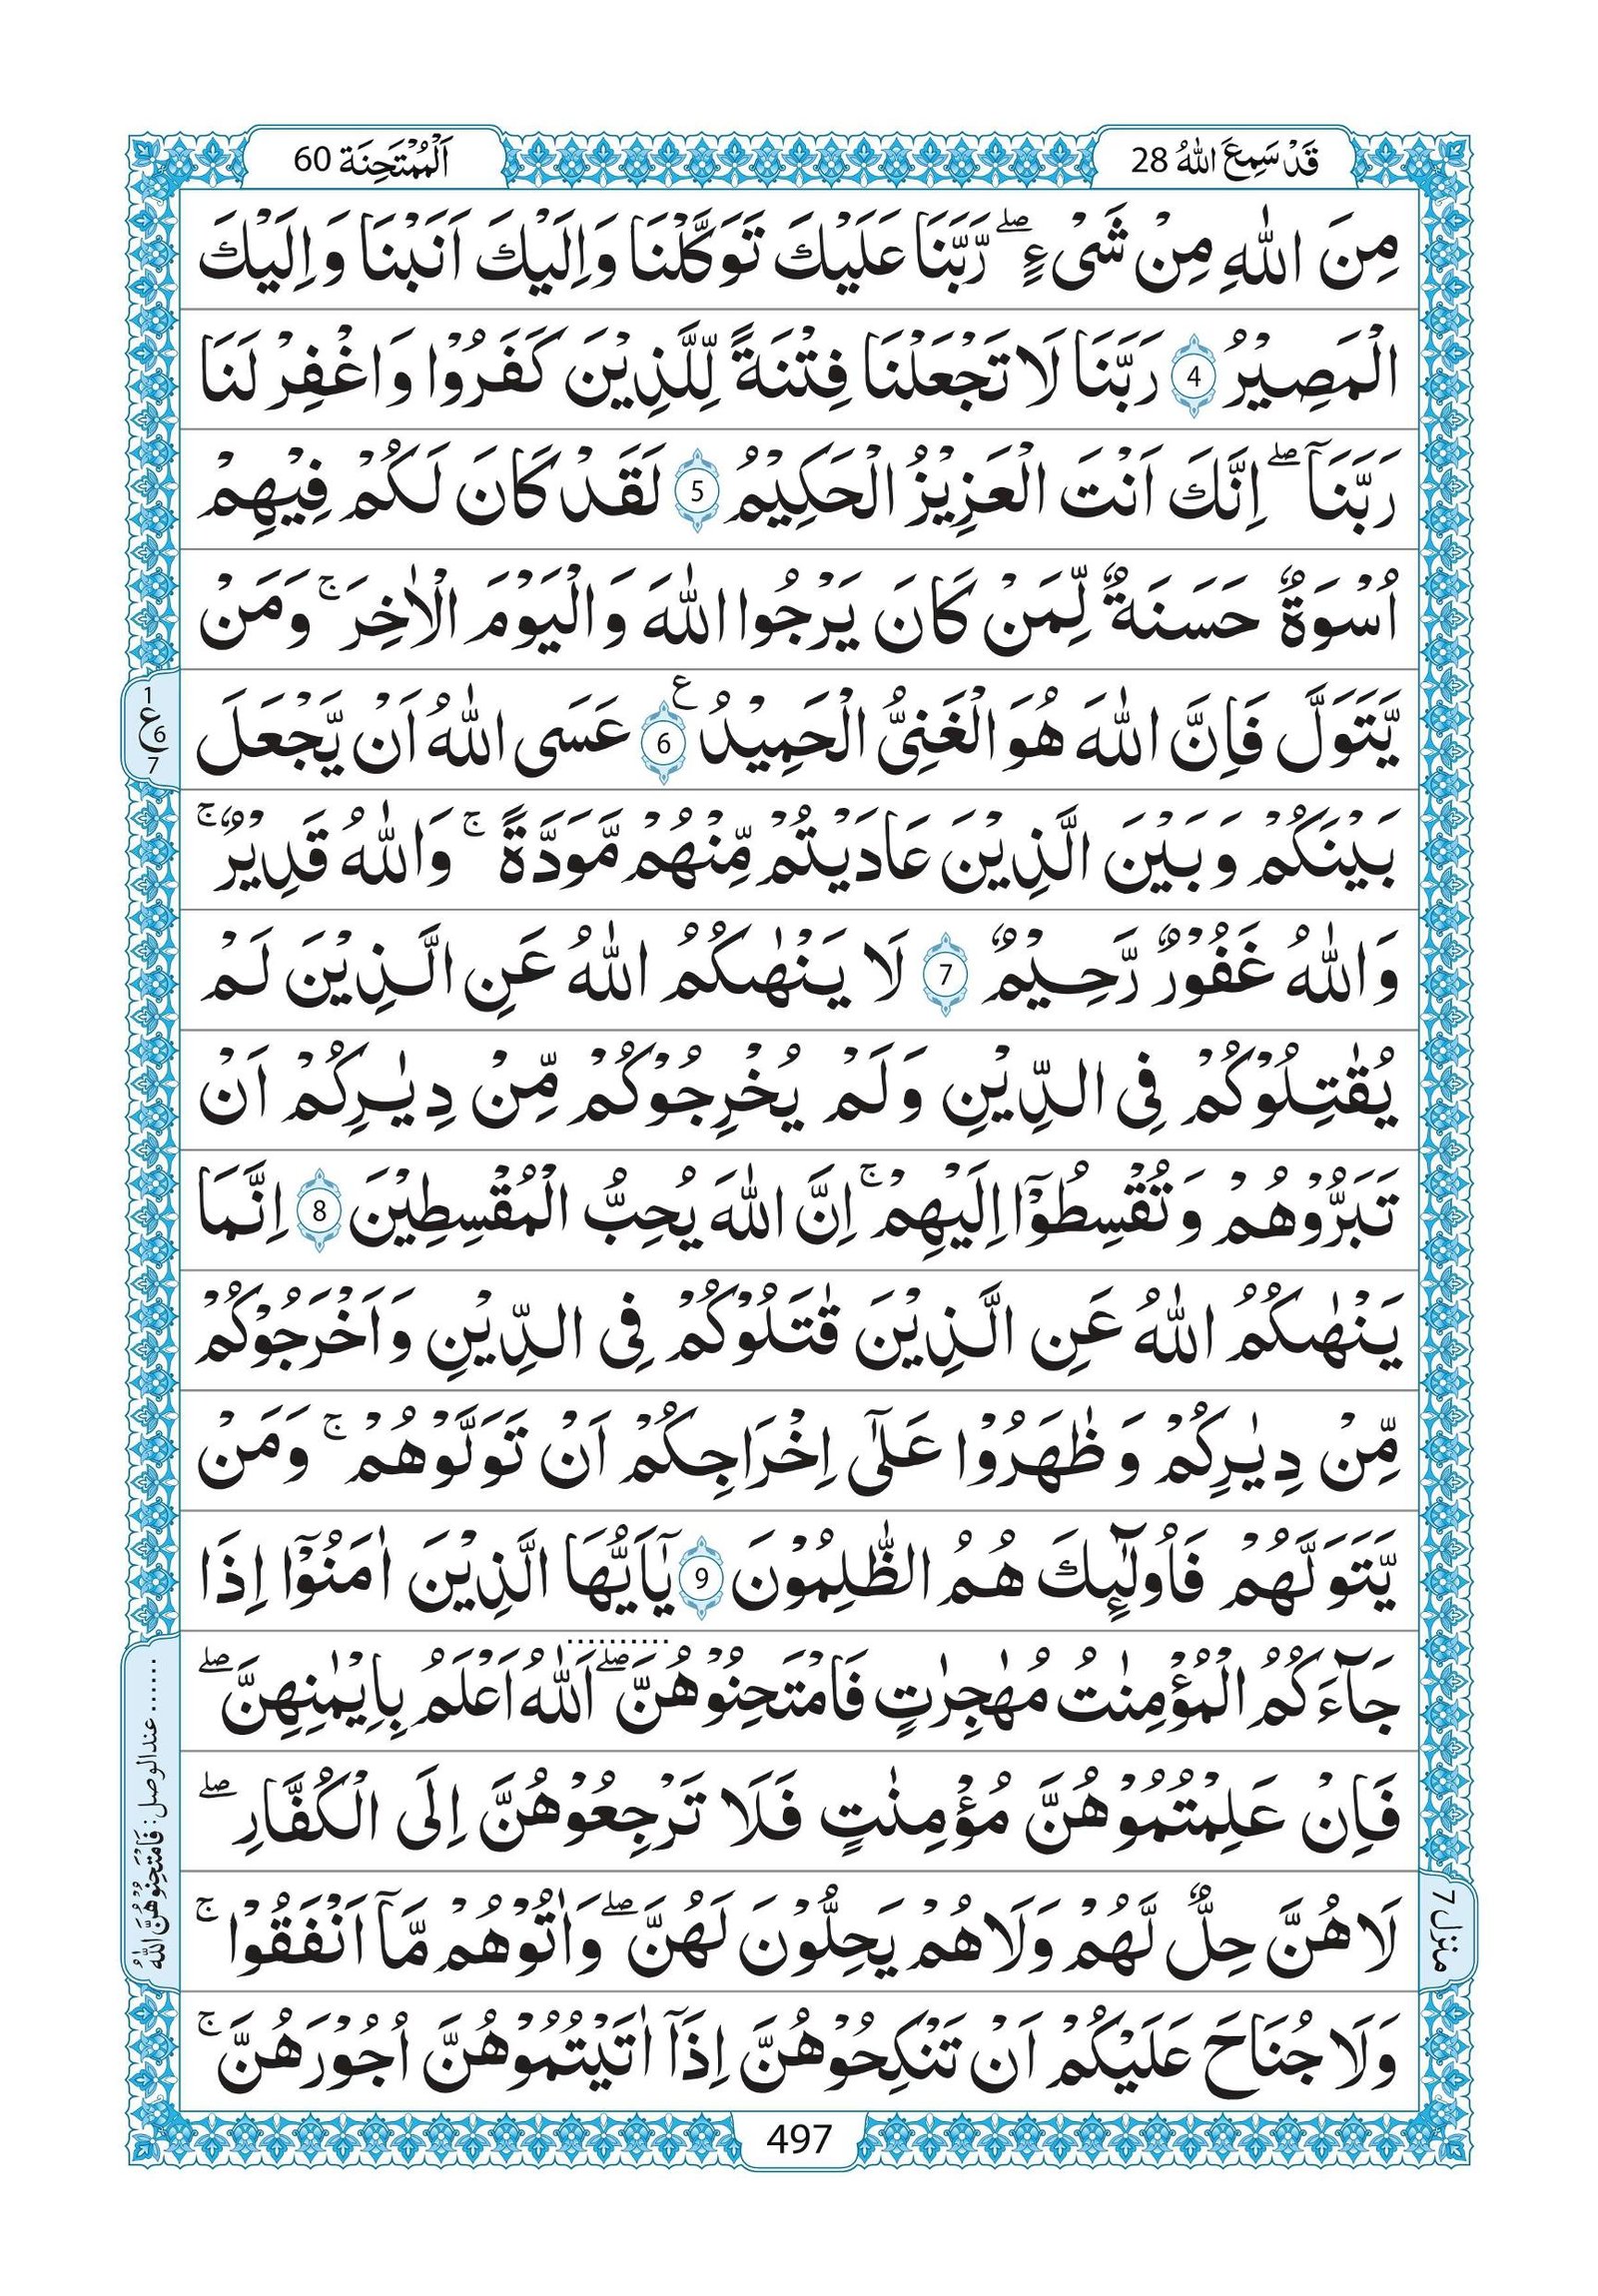 قَدْ سَمِعَ اللّٰهُ 28
اَلْمُمْتَحِنَة 60
مِنَ اللّٰهِ مِنْ شَیْءٍ ؕۖ رَّبَّنَا عَلَیْكَ تَوَكَّلْنَا وَاِلَیْكَ اَنَبْنَا وَاِلَیْكَ
الْمَصِیْرُ 4 رَبَّنَا لَا تَجْعَلْنَا فِتْنَةً لِّلَّذِیْنَ كَفَرُوْا وَاغْفِرْ لَنَا
رَبَّنَاۤ ۖ اِنَّكَ اَنْتَ الْعَزِیْزُ الْحَكِیْمُ 5 لَقَدْ كَانَ لَكُمْ فِیْهِمْ
اُسْوَةٌ حَسَنَةٌ لِّمَنْ كَانَ یَرْجُوا اللّٰهَ وَالْیَوْمَ الْاٰخِرَ ۚ وَمَنْ
یَّتَوَلَّ فَاِنَّ اللّٰهَ هُوَ الْغَنِیُّ الْحَمِیْدُ ع 6 عَسَی اللّٰهُ اَنْ یَّجْعَلَ
1 ع 6 7
بَیْنَكُمْ وَبَیْنَ الَّذِیْنَ عَادَیْتُمْ مِّنْهُمْ مَّوَدَّةً ۚ وَاللّٰهُ قَدِیْرٌ ۚ
وَاللّٰهُ غَفُوْرٌ رَّحِیْمٌ 7 لَا یَنْهٰىكُمُ اللّٰهُ عَنِ الَّذِیْنَ لَمْ
یُقٰتِلُوْكُمْ فِی الدِّیْنِ وَلَمْ یُخْرِجُوْكُمْ مِّنْ دِیٰرِكُمْ اَنْ
تَبَرُّوْهُمْ وَتُقْسِطُوْۤا اِلَیْهِمْ ۚ اِنَّ اللّٰهَ یُحِبُّ الْمُقْسِطِیْنَ 8 اِنَّمَا
یَنْهٰىكُمُ اللّٰهُ عَنِ الَّذِیْنَ قٰتَلُوْكُمْ فِی الدِّیْنِ وَاَخْرَجُوْكُمْ
مِّنْ دِیٰرِكُمْ وَظٰهَرُوْا عَلٰۤی اِخْرَاجِكُمْ اَنْ تَوَلَّوْهُمْ ۚ وَمَنْ
یَّتَوَلَّهُمْ فَاُولٰٓئِكَ هُمُ الظّٰلِمُوْنَ 9 یٰۤاَیُّهَا الَّذِیْنَ اٰمَنُوْۤا اِذَا
جَآءَكُمُ الْمُؤْمِنٰتُ مُهٰجِرٰتٍ فَامْتَحِنُوْهُنَّ ۖ اَللّٰهُ اَعْلَمُ بِاِیْمٰنِهِنَّ ۖ
فَاِنْ عَلِمْتُمُوْهُنَّ مُؤْمِنٰتٍ فَلَا تَرْجِعُوْهُنَّ اِلَی الْكُفَّارِ ۖ
لَا هُنَّ حِلٌّ لَّهُمْ وَلَا هُمْ یَحِلُّوْنَ لَهُنَّ ۖ وَاٰتُوْهُمْ مَّاۤ اَنْفَقُوْا ۚ
وَلَا جُنَاحَ عَلَیْكُمْ اَنْ تَنْكِحُوْهُنَّ اِذَاۤ اٰتَیْتُمُوْهُنَّ اُجُوْرَهُنَّ ۚ
...... عند الوصل: فَامْتَحِنُوْهُنَّ اللّٰهُ
منزل 7
497